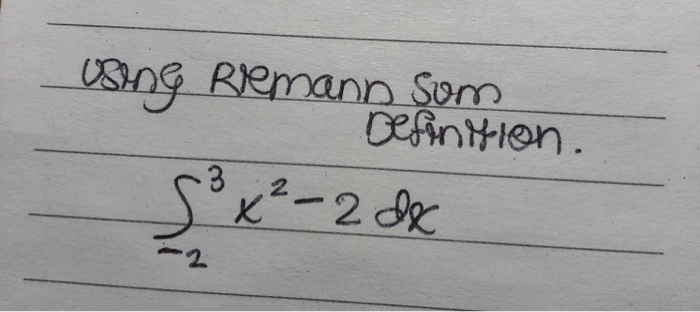 Using Riemann Sum
Definition.
∫₋₂³ x² - 2 dx